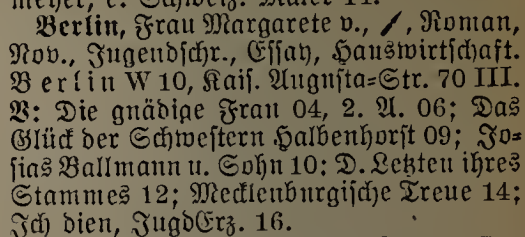 meyer, E. Schweiz. Maler 14.
Berlin, Frau Margarete v., /, Roman,
Nov., Jugendschr., Essay, Hauswirtschaft.
Berlin W 10, Kais. Augusta=Str. 70 III.
V: Die gnädige Frau 04, 2. A. 06; Das
Glück der Schwestern Halbenhorst 09; Jo=
sias Ballmann u. Sohn 10: D. Letzten ihres
Stammes 12; Mecklenburgische Treue 14;
Ich dien, JugdErz. 16.